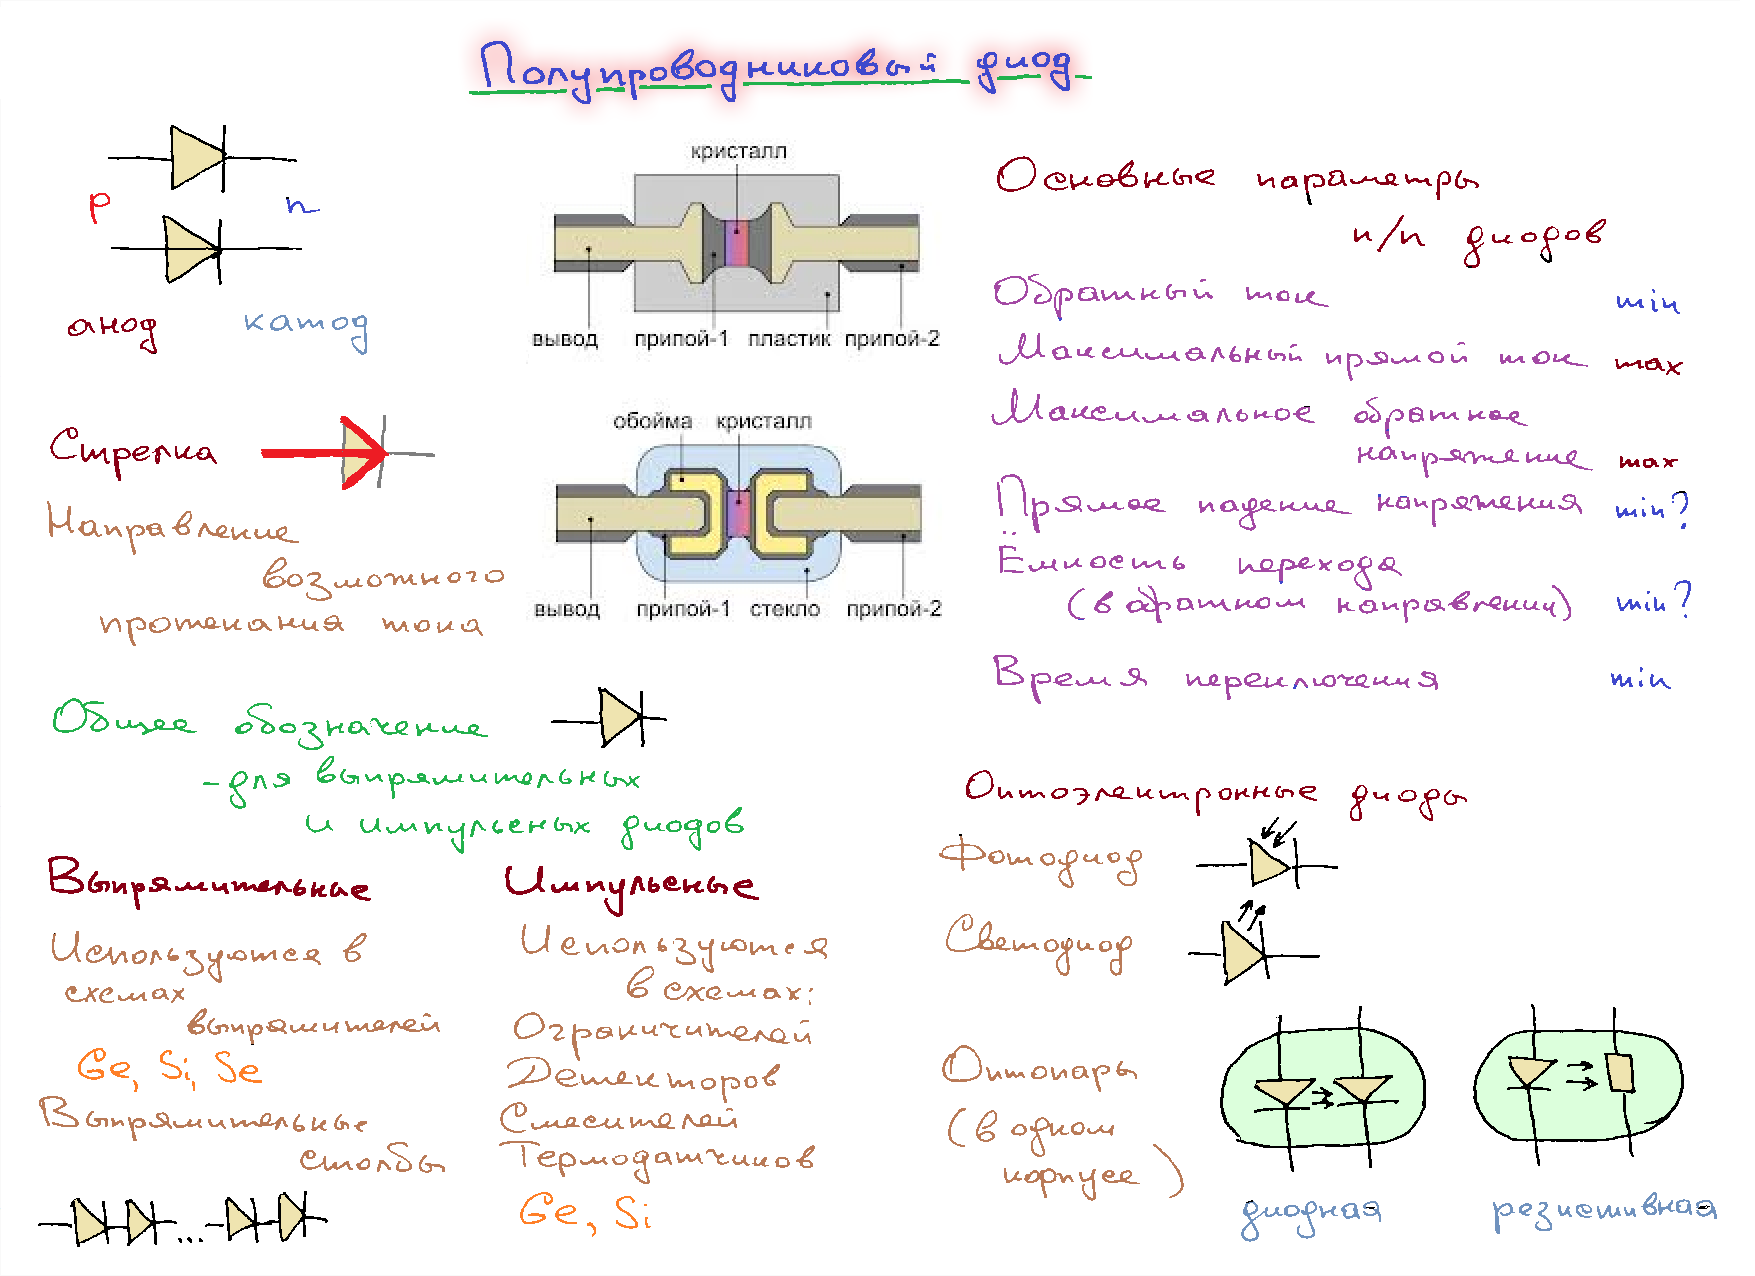 Полупроводниковый диод
p n
анод катод
Стрелка
Направление
возможного
протекания тока
кристалл
вывод припой-1 пластик припой-2
обойма кристалл
вывод припой-1 стекло припой-2
Общее обозначение
- для выпрямительных
и импульсных диодов
Выпрямительные
Используются в
схемах
выпрямителей
Ge, Si, Se
Выпрямительные
столбы
...
Импульсные
Используются
в схемах:
Ограничителей
Детекторов
Смесителей
Термодатчиков
Ge, Si
Основные параметры
п/п диодов
Обратный ток min
Максимальный прямой ток max
Максимальное обратное
напряжение max
Прямое падение напряжения min?
Ёмкость перехода
(в обратном направлении) min?
Время переключения min
Оптоэлектронные диоды
Фотодиод
Светодиод
Оптопары
(в одном
корпусе)
диодная резистивная